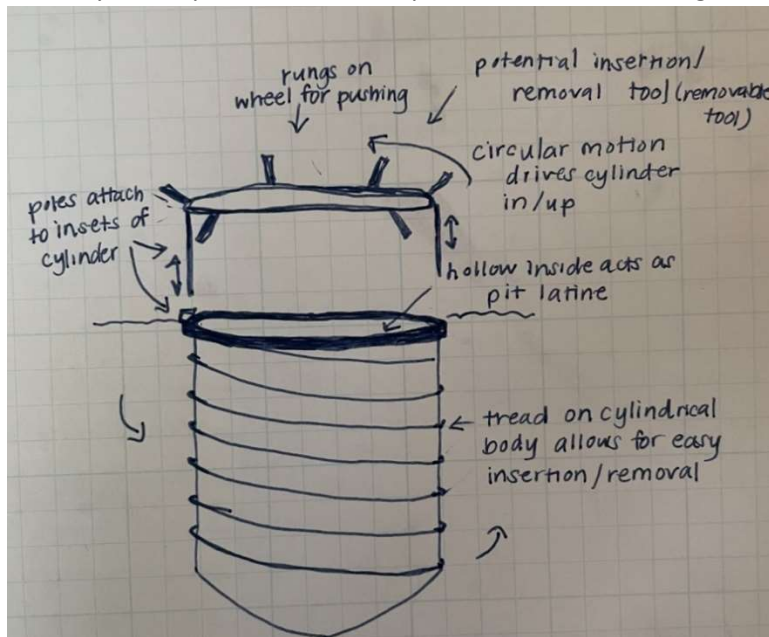 rungs on
wheel for pushing
potential insertion/
removal tool (removable
tool)
circular motion
drives cylinder
in/up
poles attach
to insets of
cylinder
hollow inside acts as
pit latine
tread on cylindrical
body allows for easy
insertion/removal